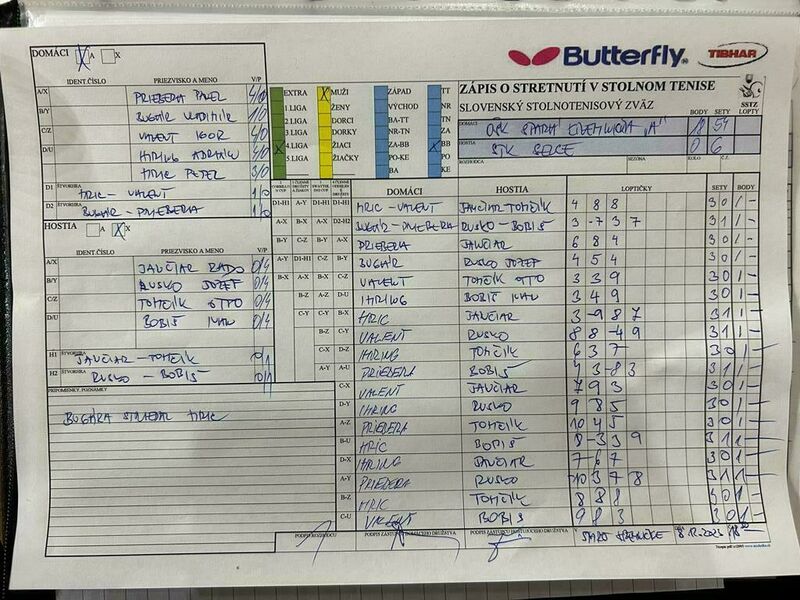 DOMÁCI A X
Butterfly
TIBHAR
IDENT.ČÍSLO PRIEZVISKO A MENO V/P
A/X PRIEBERA PAVEL 4/0
B/Y BUGÁR VLADIMÍR 1/0
C/Z VALENT IGOR 4/0
D/U IHRING ADRIÁN 4/0
HRIC PETER 3/0
D1 ŠTVORHRA HRIC - VALENT 1/0
D2 BUGÁR - PRIEBERA 1/0
HOSTIA A X
IDENT.ČÍSLO PRIEZVISKO A MENO V/P
A/X JANČIAR RADO 0/4
B/Y RUSKO JOZEF 0/4
C/Z TOMČÍK OTTO 0/4
D/U BOBIŠ IVAN 0/4
H1 ŠTVORHRA JANČIAR - TOMČÍK 0/1
H2 RUSKO - BOBIŠ 0/1
PRIPOMIENKY, POZNÁMKY
BUGÁRA STRIEDAL HRIC
EXTRA MUŽI ZÁPAD TT
1 LIGA ŽENY VÝCHOD NR
2 LIGA DORCI BA-TT TN
3 LIGA DORKY NR-TN ZA
4 LIGA ŽIACI ZA-BB BB
5 LIGA ŽIAČKY PO-KE PO
BA KE
ZÁPIS O STRETNUTÍ V STOLNOM TENISE
SLOVENSKÝ STOLNOTENISOVÝ ZVÄZ
SSTZ
BODY SETY LOPTY
DOMÁCI "A" 18 54
HOSTIA STK SELCE 0 6
ROZHODCA SEZÓNA KOLO Č.
DOMÁCI HOSTIA LOPTIČKY SETY BODY
D1-H1 HRIC - VALENT JANČIAR TOMČÍK 4 8 8 3 0 1 -
BUGÁR - PRIEBERA RUSKO - BOBIŠ 3 -7 3 7 3 1 1 -
PRIEBERA JANČIAR 6 8 4 3 0 1 -
BUGÁR RUSKO JOZEF 4 5 4 3 0 1 -
VALENT TOMČÍK OTTO 3 3 9 3 0 1 -
IHRING BOBIŠ IVAN 3 4 9 3 0 1 -
HRIC JANČIAR 3 -9 8 7 3 1 1 -
VALENT RUSKO 8 8 -4 9 3 1 1 -
IHRING TOMČÍK 6 3 7 3 0 1 -
PRIEBERA BOBIŠ 4 3 -8 3 3 1 1 -
C-X VALENT JANČIAR 7 9 3 3 0 1 -
D-Y IHRING RUSKO 9 8 5 3 0 1 -
A-Z PRIEBERA TOMČÍK 10 4 5 3 0 1 -
B-U HRIC BOBIŠ 8 -3 3 9 3 1 1 -
D-X IHRING JANČIAR 7 6 7 3 0 1 -
A-Y PRIEBERA RUSKO -10 3 7 8 3 1 1 -
B-Z HRIC TOMČÍK 8 8 8 3 0 1 -
C-U VALENT BOBIŠ 9 8 3 3 0 1 -
PODPIS ROZHODCU PODPIS ZÁSTUPCU DOMÁCEHO DRUŽSTVA PODPIS ZÁSTUPCU HOSŤUJÚCEHO DRUŽSTVA